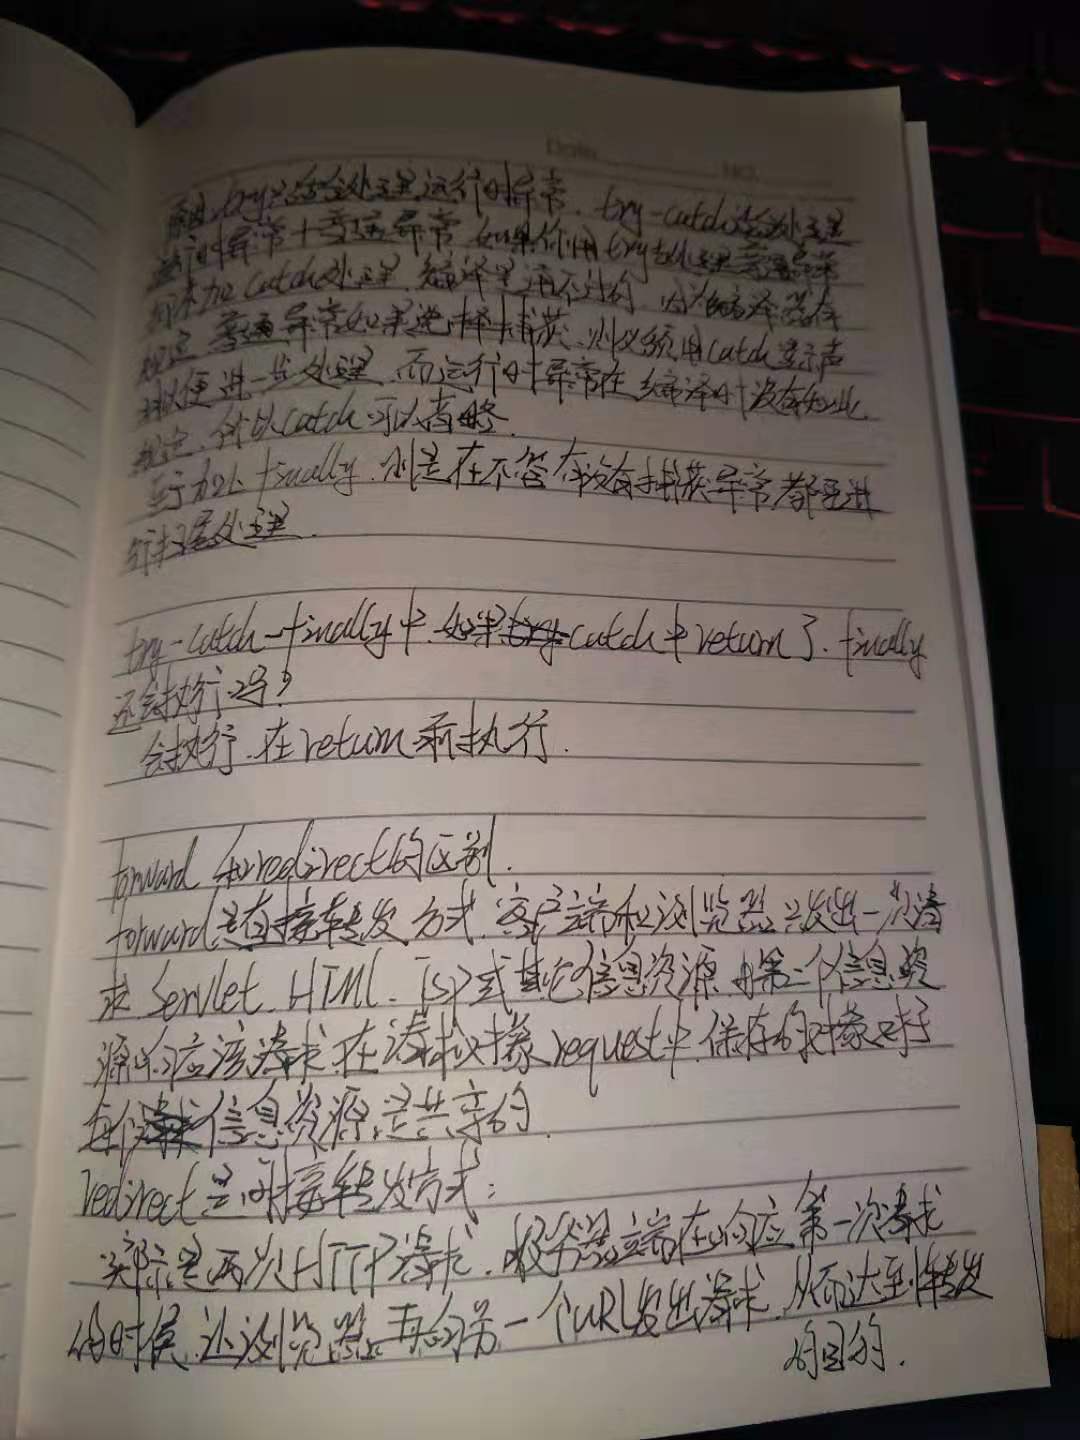 Date NO.
try只适合处理运行时异常. try-catch适合处理
运行时异常+普通异常 如果你用try去处理普通异常
却不加catch处理, 编译是通不过的, 因为编译器在
规定 普通异常如果选择捕获, 则必须用catch显示声
以便进一步处理. 而运行时异常在编译时没有如此
规定. 所以catch可以省略.
至于加上finally. 则是在不管有没有捕获异常都要进
行扫尾处理.
try-catch-finally中. 如果catch中return了. finally
还会执行吗?
会执行. 在return前执行.
forward 和redirect的区别.
forward是直接转发方式. 客户端和浏览器只发出一次请
求 Servlet、HTML、JSP或其它信息资源. 由第二个信息资
源响应该请求. 在请求对象request中. 保存的对象对于
每个信息资源是共享的.
redirect是间接转发方式:
实际是两次HTTP请求. 服务器端在响应第一次请求
的时候. 让浏览器再向另一个URL发出请求. 从而达到转发
的目的.